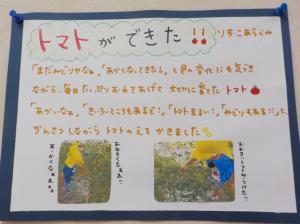 トマトができた!! りす・こあらぐみ
「まだみどりやなぁ」「あかくなってきたよ」と色の変化にも気づき
ながら、毎日たっぷりお水をあげて大切に育てたトマト
「あかいなぁ」「きいろいところもあるで!」「トマトまるい!」「みどりもある!!」と、
かんさつしながらトマトのえをかきました
おおきくなぁれ!!